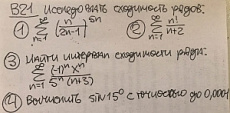 В21 Исследовать сходимость рядов:
① ∑_{n=1}^{∞} (n/(2n-1))^{5n} ② ∑_{n=1}^{∞} n!/(n+2)
③ Найти интервал сходимости ряда:
∑_{n=1}^{∞} (-1)^n x^n / (5^n (n+3))
④ Вычислить sin 15° с точностью до 0,0001